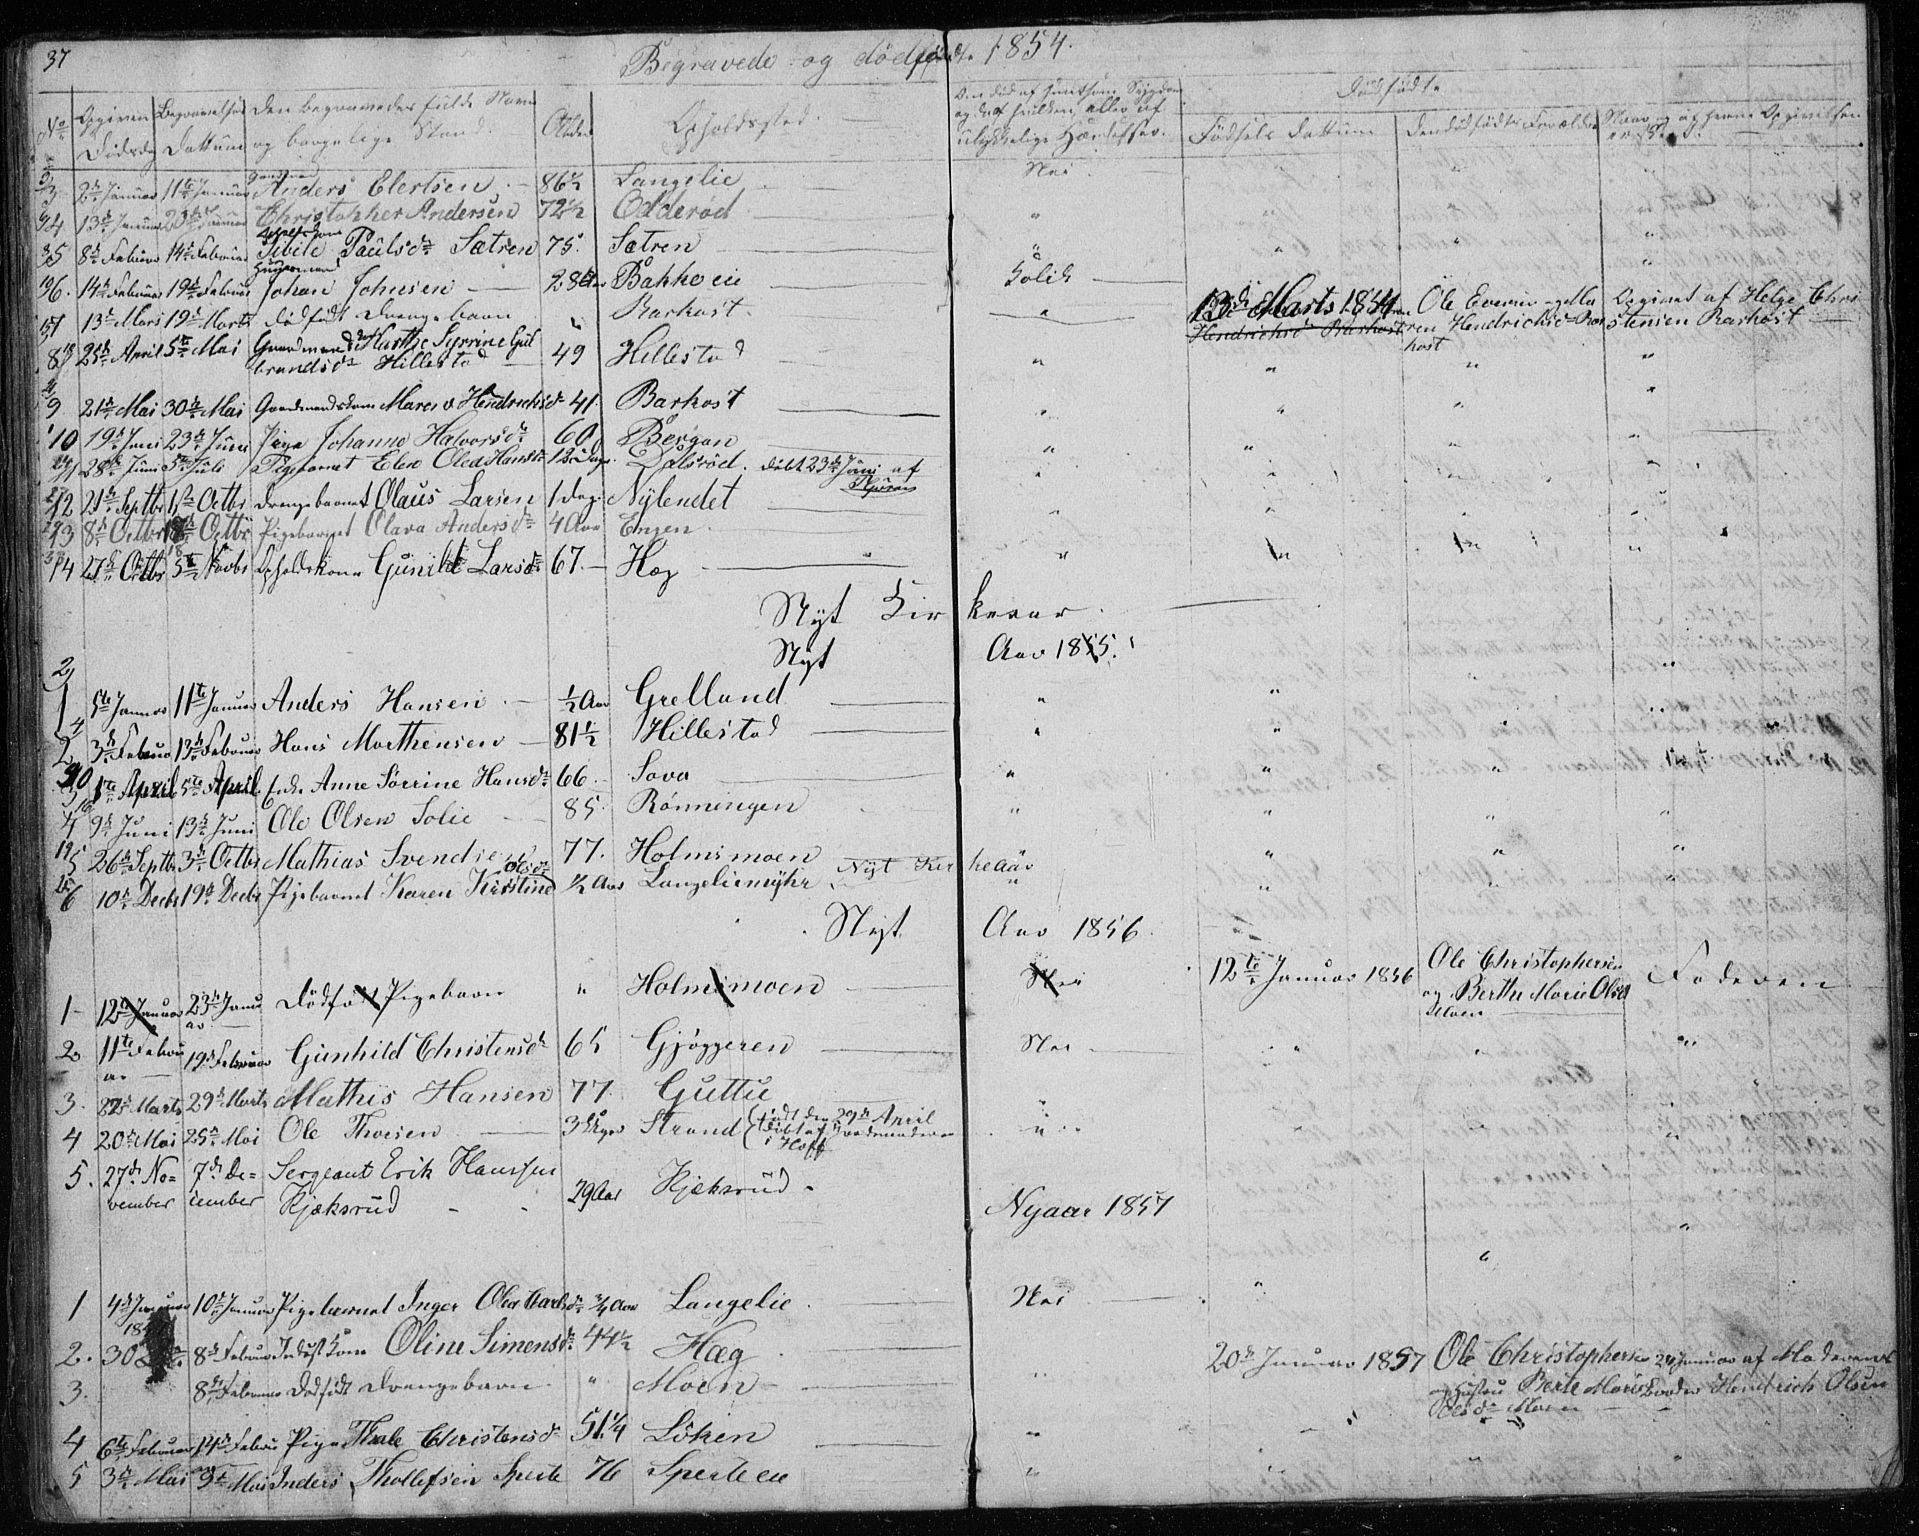 37
Begravede og dødfødte 1854.
No Opgiven Dødsdag Begravelses Dattum Den begravedes fulde Navn og borgelige Stand. Alder Opholdssted.
Dødfødte
Fødsels Dattum Den dødfødtes Forældre
3 2de Januar 11te Januar Anders Elertsen 86½ Langelie Nei
4 13de Januar 23de Januar Christopher Andersen 72½ Odderød "
5 8de Februar 14de Februar Sibile Paulsdr Sætren 75. Sætren "
6. 14de Februar 19de Februar Huusmand Johan Johnsen 28 Aar Bakke eie Kolik
7 13de Mars 19de Marts dødfødt Drengebarn " Barkost. "
13de Marts 1854
Hendrichsdr Barkost
Ole Everin
ren Hendrichsdr Bar
kost
Opgivet af Helge Chri
stensen Barkost
8 25de April 5te Mai Gaardmand Marthe Syrrine Gul
brandsdr Hillestad 49 Hillestad "
9 21de Mai 30de Mai Gaardmandskone Maren Hendrichsdr 41. Barkost "
10 19de Juni 23de Juni Pige Johanne Halvorsdr 60 Bergan "
11 28de Juni 5te Juli Pigebarnet Elen Olea Hansdr 12 Dage. Dalsrød. døbt 23de Juni af
12 21de Septbr 1ste Octbr Drengebarnet Olaus Larsen 1 Dag. Nylendet "
13 8de Octbr Octbr Pigebarnet Olava Andersdr 4 Aar Engen. "
14 27de Octbr 5te Novbr Gunild Larsdr 67. Hæg "
Nyt Kirkeaar.
Nyt Aar 1855.
1 5te Januar 11te Januar Anders Hansen ½ Aar Grelland "
2 3de Februar 13de Februar Hans Morthensen 81½ Hillestad "
3 1te April 5te April Enke Anne Sørrine Hansdr 66. Sova "
4 9de Juni 13de Juni Ole Olsen Solie 85. Rønningen "
5 26de Septbr 3de Octbr Mathias Svendsen 77. Holmsmoen "
Nyt Kirkeaar
6 10de Decbr 19de Decbr Pigebarnet Karen Kirstine Olsdr ½ Aar Langeliemyhr "
Nyt Aar 1856.
1 12te Januar 23de Janu
ar Dødfødt Pigebarn " Holmsmoen Nei 12te Januar 1856 Ole Christophersen
og Berthe Marie Olsdr
Moen Faderen
2 11te Febru
ar 19de Februar Gunhild Christensdr 65 Gjøggeren Nei
3. 22de Marts 29de Marts Mathis Hansen 77. Guttu "
4 20de Mai 25de Mai Ole Thoesen 3 Uger Strand (født den 29de April
døbt af Gaardmanden
i Hoff "
5. 27de No=
vember 7de De=
cember Sergeant Erik Hanssen
Kjæksrud 29 Aar Kjæksrud.
Nyaar 1857
1 4de Januar 10de Januar Pigebarnet Inger Olea ¾ Aar Langelie. Nei
2. 30 8de Februar Oline Simensdr 44½ Hæg
3. 8de Februar Dødfødt Drengebarn " Moen 20de Januar 1857 Ole Christophersen
og Hustru Berte Marie
Olsdr Moen 24 Januar af Moderens
Broder Hendrich Olsen
4 6te Februar 14de Februar Pige Thale Christensdr 51¼ Løken "
5 3de Mai 9de Mai Anders Thollefsen Sperte 76 Sperte eie "